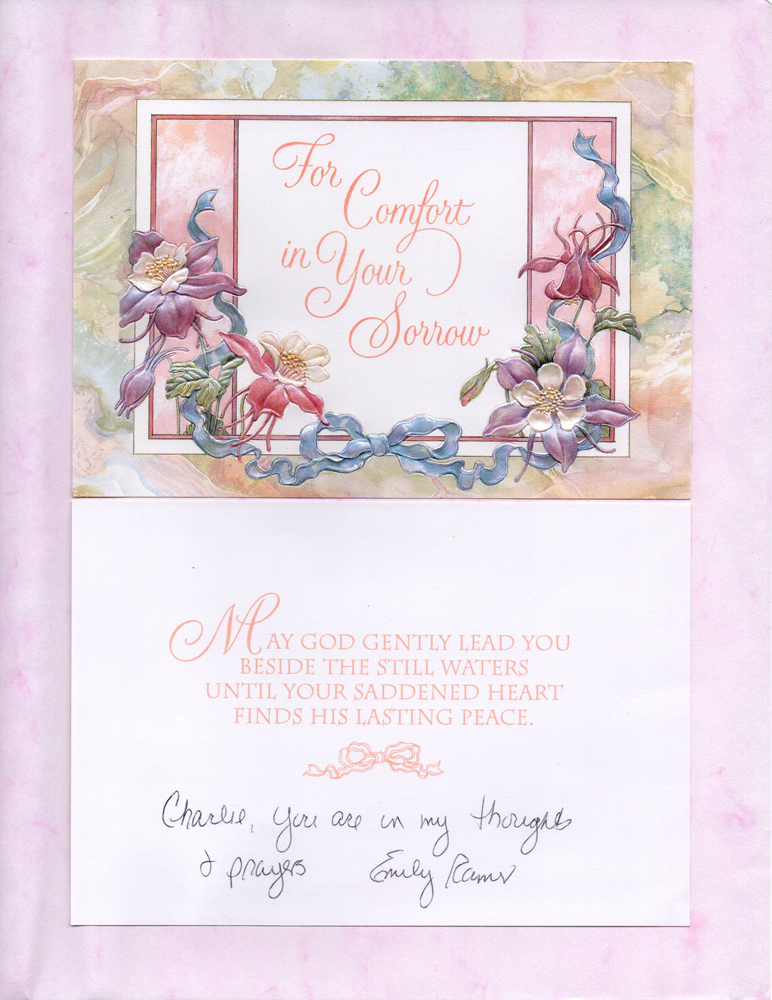 For
Comfort
in Your
Sorrow
MAY GOD GENTLY LEAD YOU
BESIDE THE STILL WATERS
UNTIL YOUR SADDENED HEART
FINDS HIS LASTING PEACE.
Charlie, you are in my thoughts
& prayers Emily